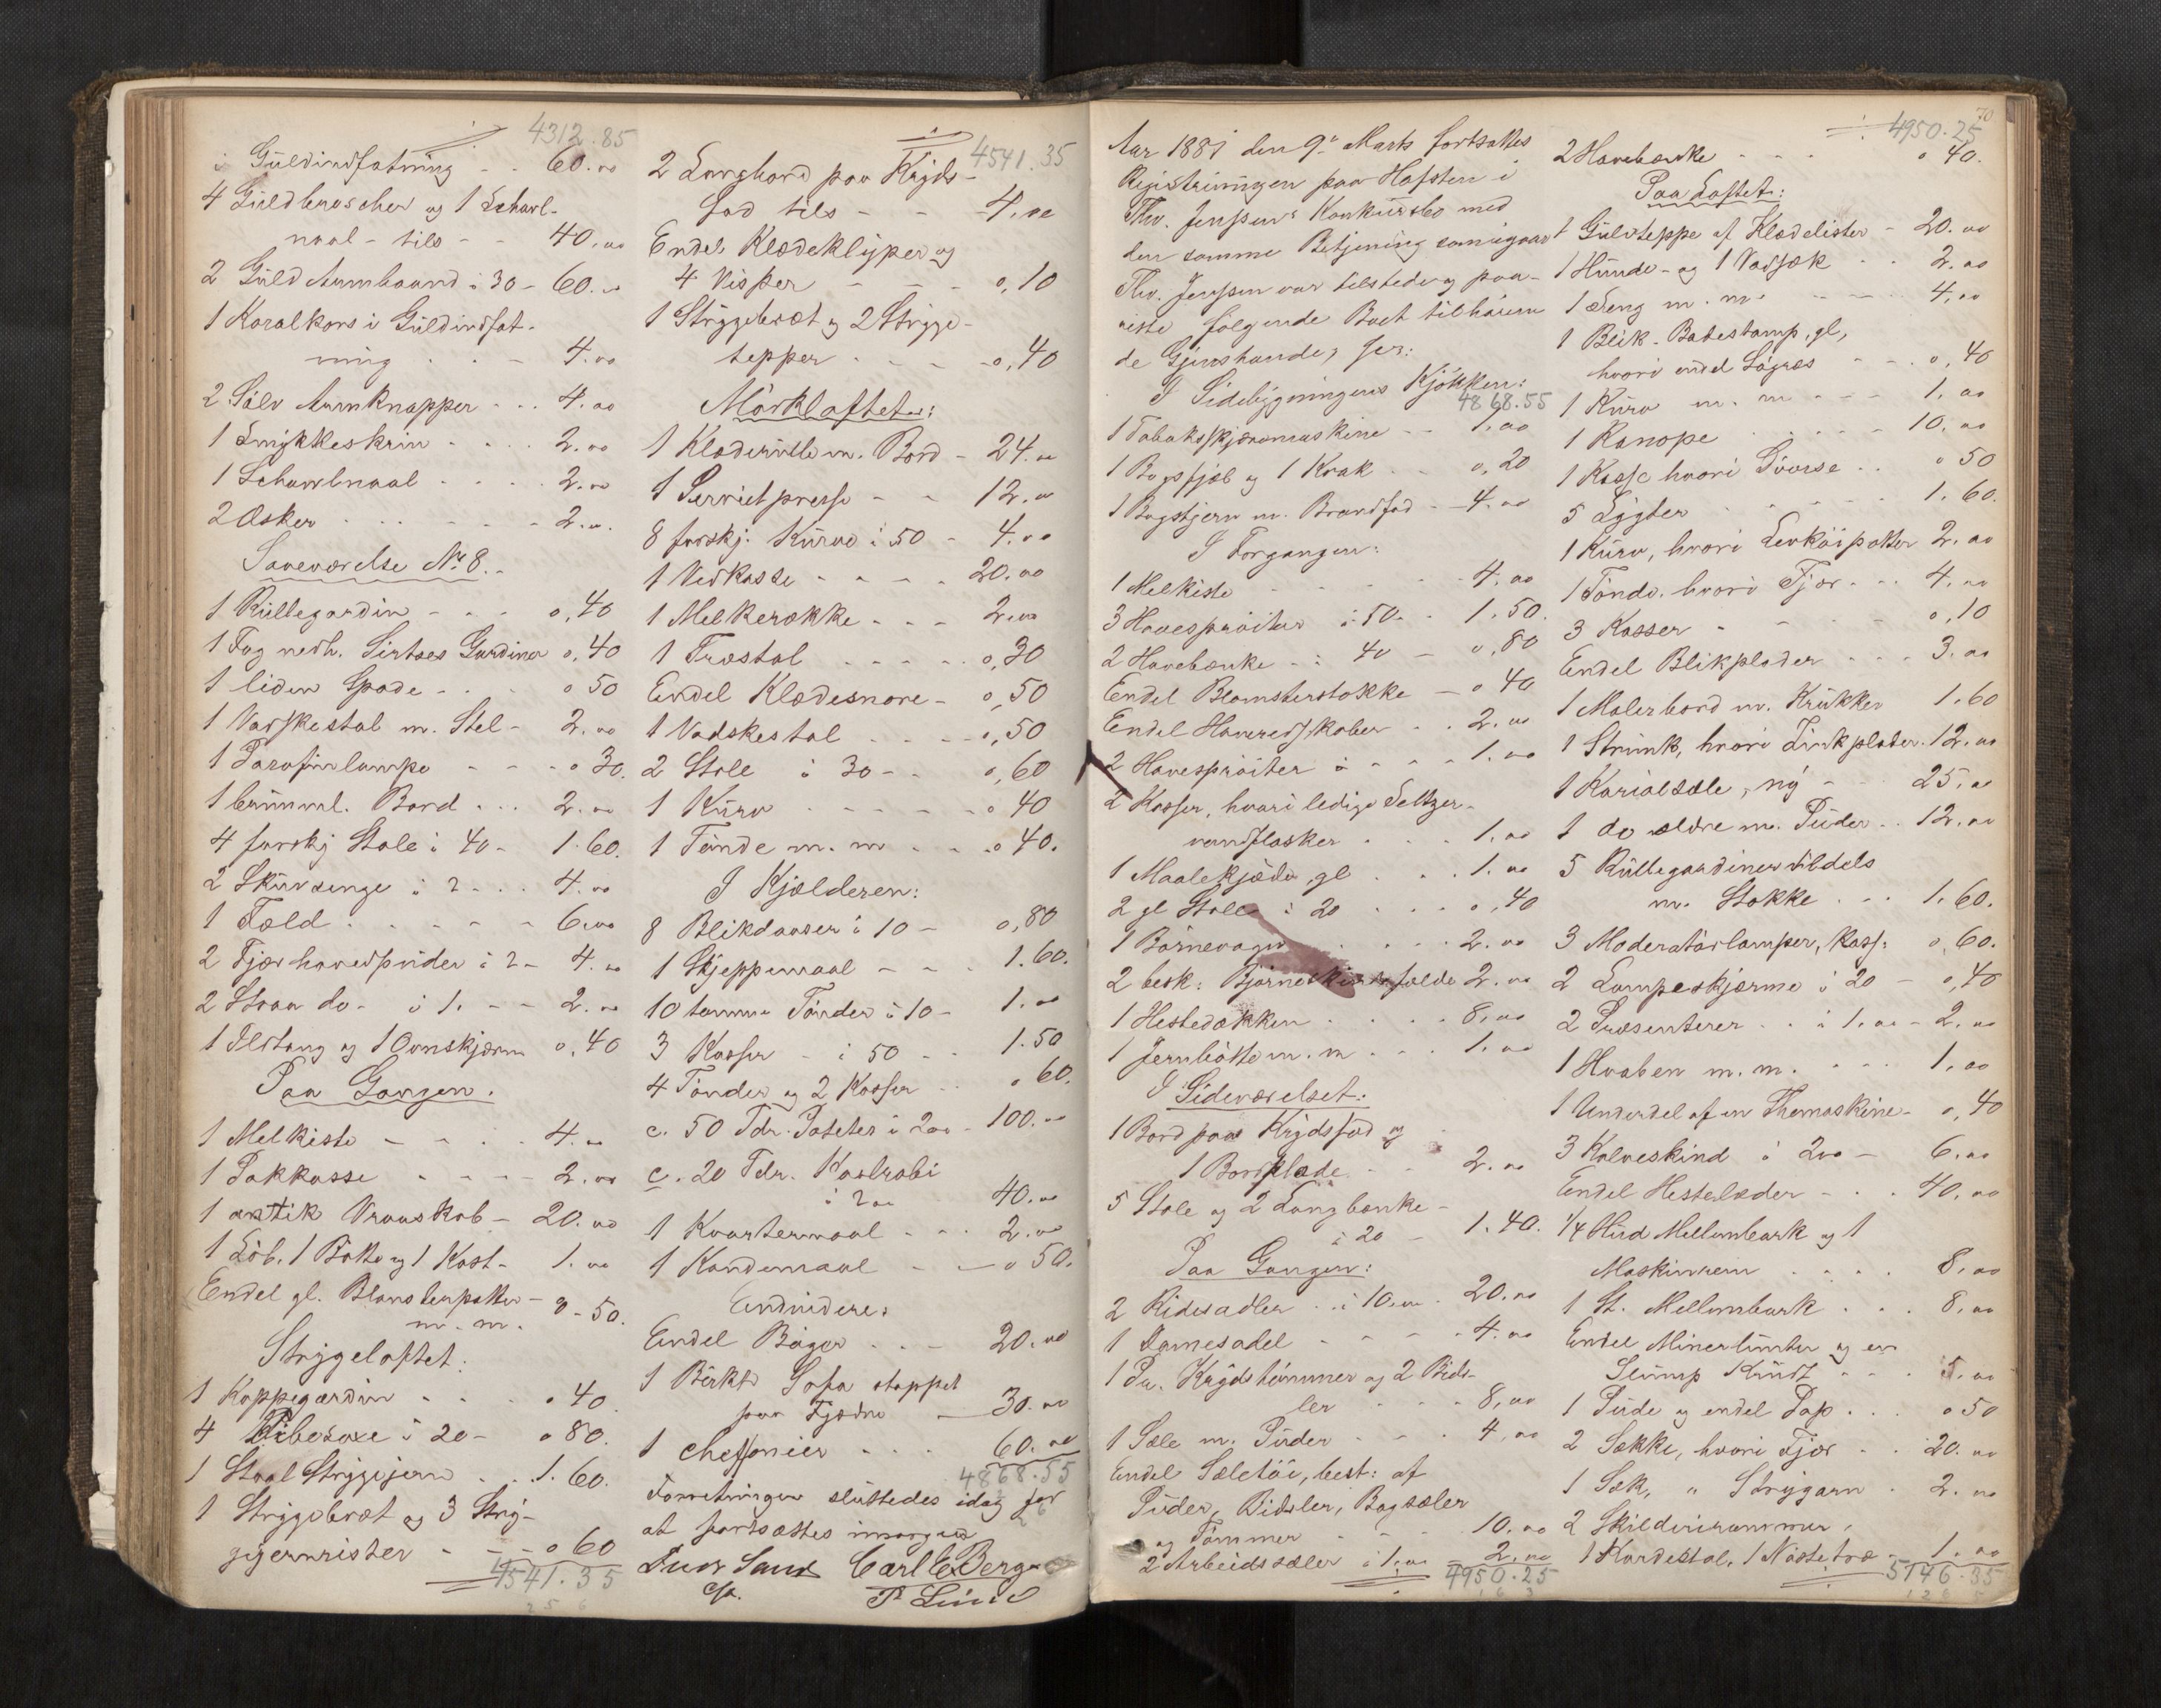 4312.85
i Guldindfatning - - 60.00
4 Guldbroscher og 1 Schavl-
naal - tils - - 40.00
2 Guld Armbaand à 30 - 60.00
1 Koralkors i Guldindfat-
ning - - - 4.00
2 Sölv Armknapper - - - 4.00
1 Smykkeskrin - - - - 2.00
1 Schavlnaal - - - - 2.00
2 Æsker - - - - - 2.00
Soveværelse No 8.
1 Rullegardin - - - 0,40
1 Fag nedh. Sirtses Gardiner 0,40
1 liden Spade - - - 0 50
1 Vadskestol m. Stel - 2.00
1 Parafinlampe - - - 0 30.
1 brunml. Bord - - - 2.00
4 forskj Stole à 40 - 1.60.
2 Skuvsenge à 2 - - - 4.00
1 Fæld - - - - - 6.00
2 Fjær hovedpuder à 2 - 4.00
2 Straa do - à 1. - - 2.00
1 Ildtang og 1 Ovnskjærm 0,40
Paa Gangen.
1 Melkiste - - - - 4.00
1 Pakkasse - - - - 2.00
1 antik Vraaskab - 20.00
1 Löb. 1 Bötte og 1 Kost - 1.00
Endel gl. Blomsterpotter
m. m. - 0 - 50.
Strygeloftet:
1 Kappegardin - - - 0 40
4 à 20 - 0 80.
1 Staal Strygejern - - 1.60.
1 Strygebræt og 3 Stry-
gejernrister - - - 0 60
4541.35
4541.35
2 Langbord paa Kryds-
fod tils - - - 4.00
Endel Klædeklyper og
4 Visper - - - 0,10
1 Strygebræt og 2 Stryge-
tepper - - - 0,40
Mörkloftet:
1 Klæderulle m. Bord - 24.00
1 Servietpresse - - 12.00
8 forskj. Kurve à 50 - 4.00
1 Vedkasse - - - - 20.00
1 Melkerække - - - 2.00
1 Træstol - - - - - 0,30
Endel Klædesnore - 0,50
1 Vadskestol - - - - 0,50
2 Stole à 30 - - 0,60
1 Kurv - - - - - 0 40
1 Tönde m. m - - - 0 40.
I Kjælderen:
8 Blikdaaser à 10 - 0,80
1 Skjeppemaal - - - 1.60.
10 tomme Tönder à 10 - 1.00
3 Kasser - à 50 - - 1.50
4 Tönder og 2 Kasser - - 0 60.
c. 50 Tdr. Poteter à 2.00 - 100.00
c. 20 Tdr. Kaalrabi
à 2.00 40.00
1 Kvartermaal - - - 2.00
1 Kandemaal - - - 0 50.
Endvidere:
Endel Böger - - - 20.00
1 Birktr Sofa stoppet
paa Fjædre - 30.00
1 Cheffonier - - - 60.00
4868.55
Forretningen sluttedes idag for
at fortsættes imorgen
Carl E Berg
P Lund
Aar 1881 den 9de Marts fortsattes
Registreringen paa Hafsten i
Thv. Jenssens Konkursbo med
den samme Betjening som igaar
Thv. Jenssen var tilstede og paa-
viste følgende Boet tilhören-
de Gjenstande, ser:
I Sidebygningens Kjökken:
4868.55
1 Tobaksskjæremaskine - - 1.00
1 Bogsfjöl og 1 Krak - - 0,20
1 Bagstjern m. Brandfad - 4.00
I Forgangen:
1 Melkiste - - - - 4.00
3 Havesprøiter à 50 - - 1.50.
2 Havebænke - à 40 - 0,80
Endel Blomsterstokke - 0 40
Endel Haveredskaber - - 2.00
2 Havesprøiter à - - - 1.00
2 Kasser, hvori ledige Seltzer-
vandflasker - - - 1.00
1 Maalekjæde, gl - - - 1.00
2 gl Stole à 20 - - - 0,40
1 Börnevogn - - - - 2.00
2 besk: Björneskinsfælde 2.00
1 Hestedækken - - - - 8.00
1 Jernbötte m. m - - - 1.00
I Sideværelset:
1 Bord paa Krydsfod og
1 Bordplade - - 2.00
5 Stole og 2 Langbænke -
à 20 - 1.40.
Paa Gangen:
2 Ridesadler - - à 10.00 - 20.00
1 Damesadel - - - - 4.00
1 Pr. Krydstömmer og 2 Bids-
ler - - - 8,00
1 Sæle m. Puder - - - 4,00
Endel Sæletöi, best: af
Puder, Bidsler, Bagsæler
og Tömmer - - - 10.00
2 Arbeidssæler à 1.00 - 2.00
4950.25
70
4950.25
2 Havebænke - - - 0 40.
Paa Loftet:
1 Gulvteppe af Klædelister - 20.00
1 Hunde- og 1 Vadsæk - - 2.00
1 Seng m. m. - - - 4,00
1 Blik-Badestamp, gl,
hvori endel Sögræs - - 0,40
1 Kurv m. m - - - 1.00
1 Kanope - - - - - 10.00
1 Kasse hvori - - 0 50
5 Lygter - - - - - 1.60.
1 Kurv, hvori Levköipotter 2.00
1 Tönde, hvori Fjær - - - 4.00
3 Kasser - - - - 0,10
Endel Blikplader - - - 3.00
1 Malerbord m. Krukker 1.60
1 Strunk, hvori Zinkplader. 12.00
1 Kariolsæle, ny - - 25.00
1 do ældre m. Puder - - 12.00
5 Rullegardiner tildels
m. Stokke - - - 1.60.
3 Moderatörlamper, kass: 0,60.
2 Lampeskjærme à 20 - 0,40
2 Præsenterer - - à 1.00 - 2.00
1 m. m. - - - 1.00
1 Underdel af en Themaskine - 0,40
3 Kalveskind à 2.00 - 6.00
Endel Hestelæder - - - 40.00
1/4 Hud Mellembark og 1
Maskinrem - - - - 8.00
1 St. Mellembark - - - 8.00
Endel Minerlunter og en
Slump Krudt - - - 5.00
1 Pude og endel Pap - - - 0 50
2 Sække, hvori Fjær - - 20.00
1 Sæk, " Strygarn - 2.00
2 Skilderirammer,
1 Kardestol, 1 Nöstetræ - 1.00
5146.35